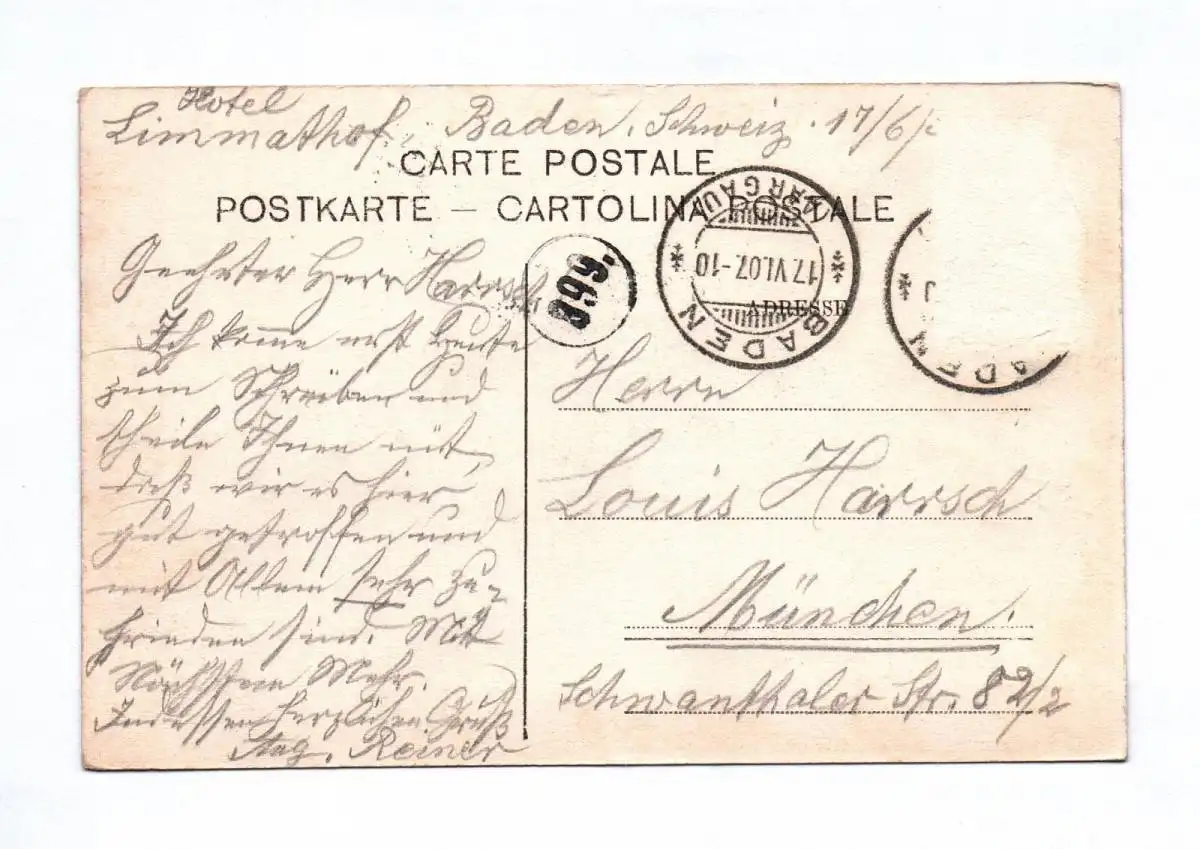 Hotel
Limmathof, Baden, Schweiz. 17/6/
CARTE POSTALE
POSTKARTE — CARTOLINA POSTALE
AARGAU
17.VI.07.-10
BADEN
899.
ADRESSE
ADEN
Geehrter Herr Harrsch
Ich komme erst heute
zum Schreiben und
theile Ihnen mit,
daß wir es hier
gut getroffen und
mit Allem sehr zu-
frieden sind. Mit
Nächstem Mehr.
Indessen herzlichen Gruß
Aug. Reiner
Herrn
Louis Harrsch
München.
Schwanthaler Str. 82/2